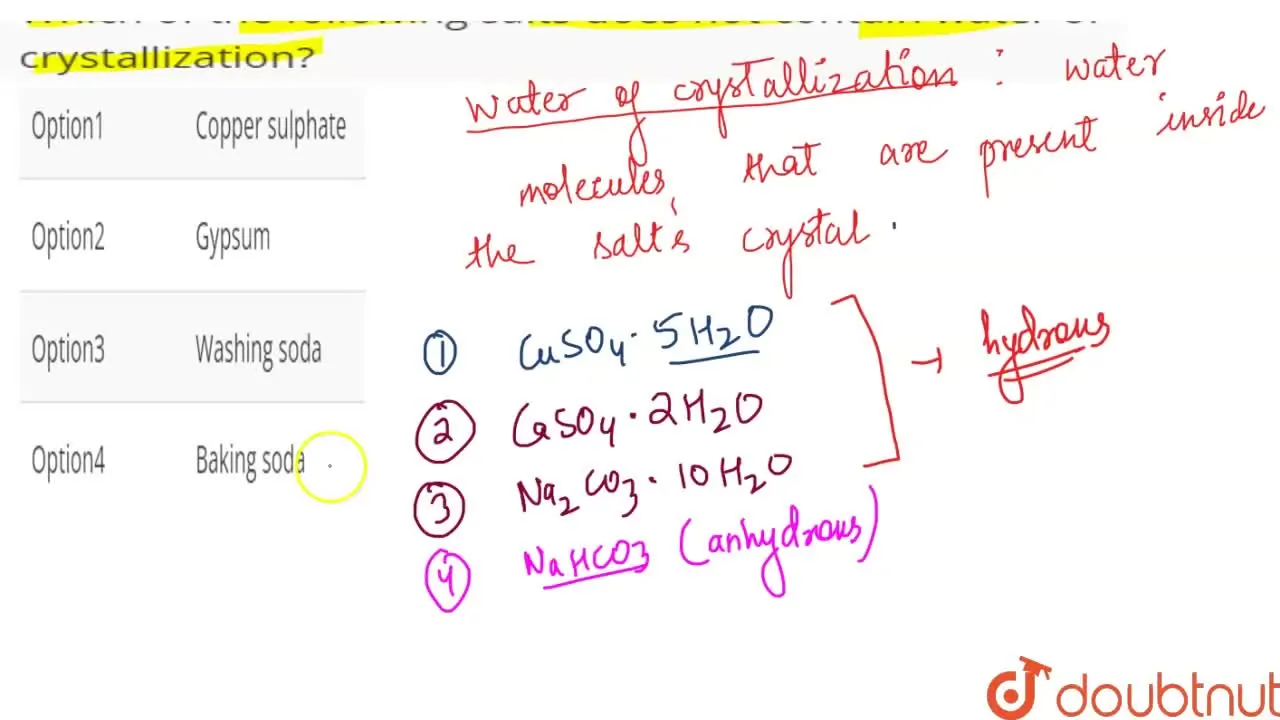 Which of the following salts does not contain water of
crystallization?
Option1 Copper sulphate
Option2 Gypsum
Option3 Washing soda
Option4 Baking soda
water of crystallization : water
molecules that are present inside
the salt's crystal.
1 CuSO4 · 5H2O
2 CaSO4 · 2H2O
3 Na2CO3 · 10H2O
→ hydrous
4 NaHCO3 (anhydrous)
doubtnut